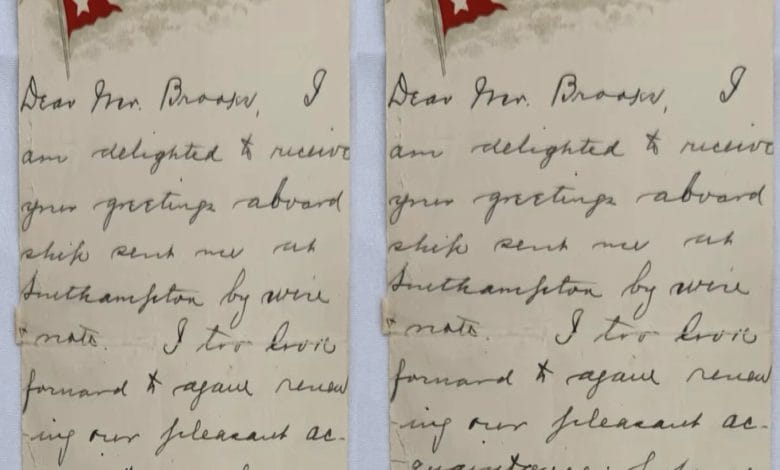 Dear Mr. I
am delighted to receive
your greetings aboard
ship sent me at
Southampton by wire
& note. I too look
forward to again renew
-ing our pleasant ac-
Dear Mr. I
am delighted to receive
your greetings aboard
ship sent me at
Southampton by wire
& note. I too look
forward to again renew
-ing our pleasant ac-
quaintance